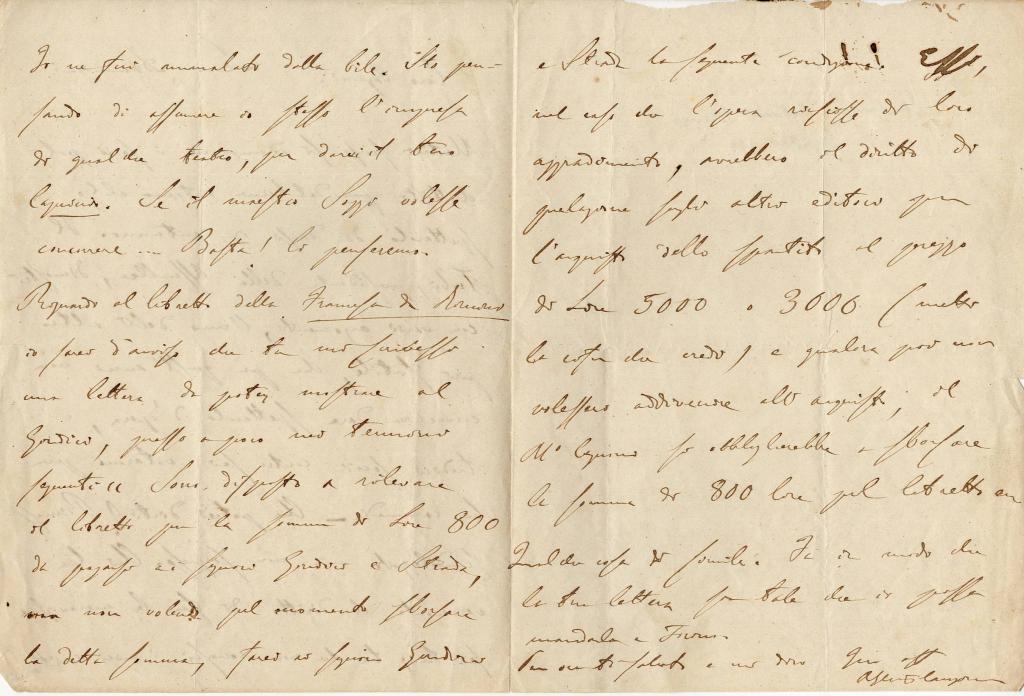 Io ne fui ammalato dalla bile. Sto pen-
sando di assumere io stesso l'impresa
di qualche teatro, per darci il tuo
Se il maestro Sozzi volesse
concorrere ... Basta! Ci penseremo.
Riguardo al libretto della Francesca da Rimini
io sarei d'avviso che tu mi scrivessi
una lettera da poter mostrare al
Giudici, presso a poco nei termini
seguenti: « Sono disposto a rilevare
il libretto per la somma di Lire 800
da pagarsi ai signori Giudici e Strada,
non volendo pel momento sborsare
la detta somma, farei ai signori Giudici
e Strada la seguente condizione. Essi,
nel caso che l'opera riuscisse di loro
aggradimento, avrebbero il diritto di
prelazione sugli altri editori per
l'acquisto dello spartito al prezzo
di Lire 5000 o 3000 (metti
la cifra che credi) e qualora poi non
volessero addivenire all'acquisto, il
M° si obbligherebbe a sborsare
la somma di 800 lire pel libretto
Qualche cosa di simile. Fa in modo che
la tua lettera sia tale che io possa
mandarla a
Per ora ti saluto e mi dico